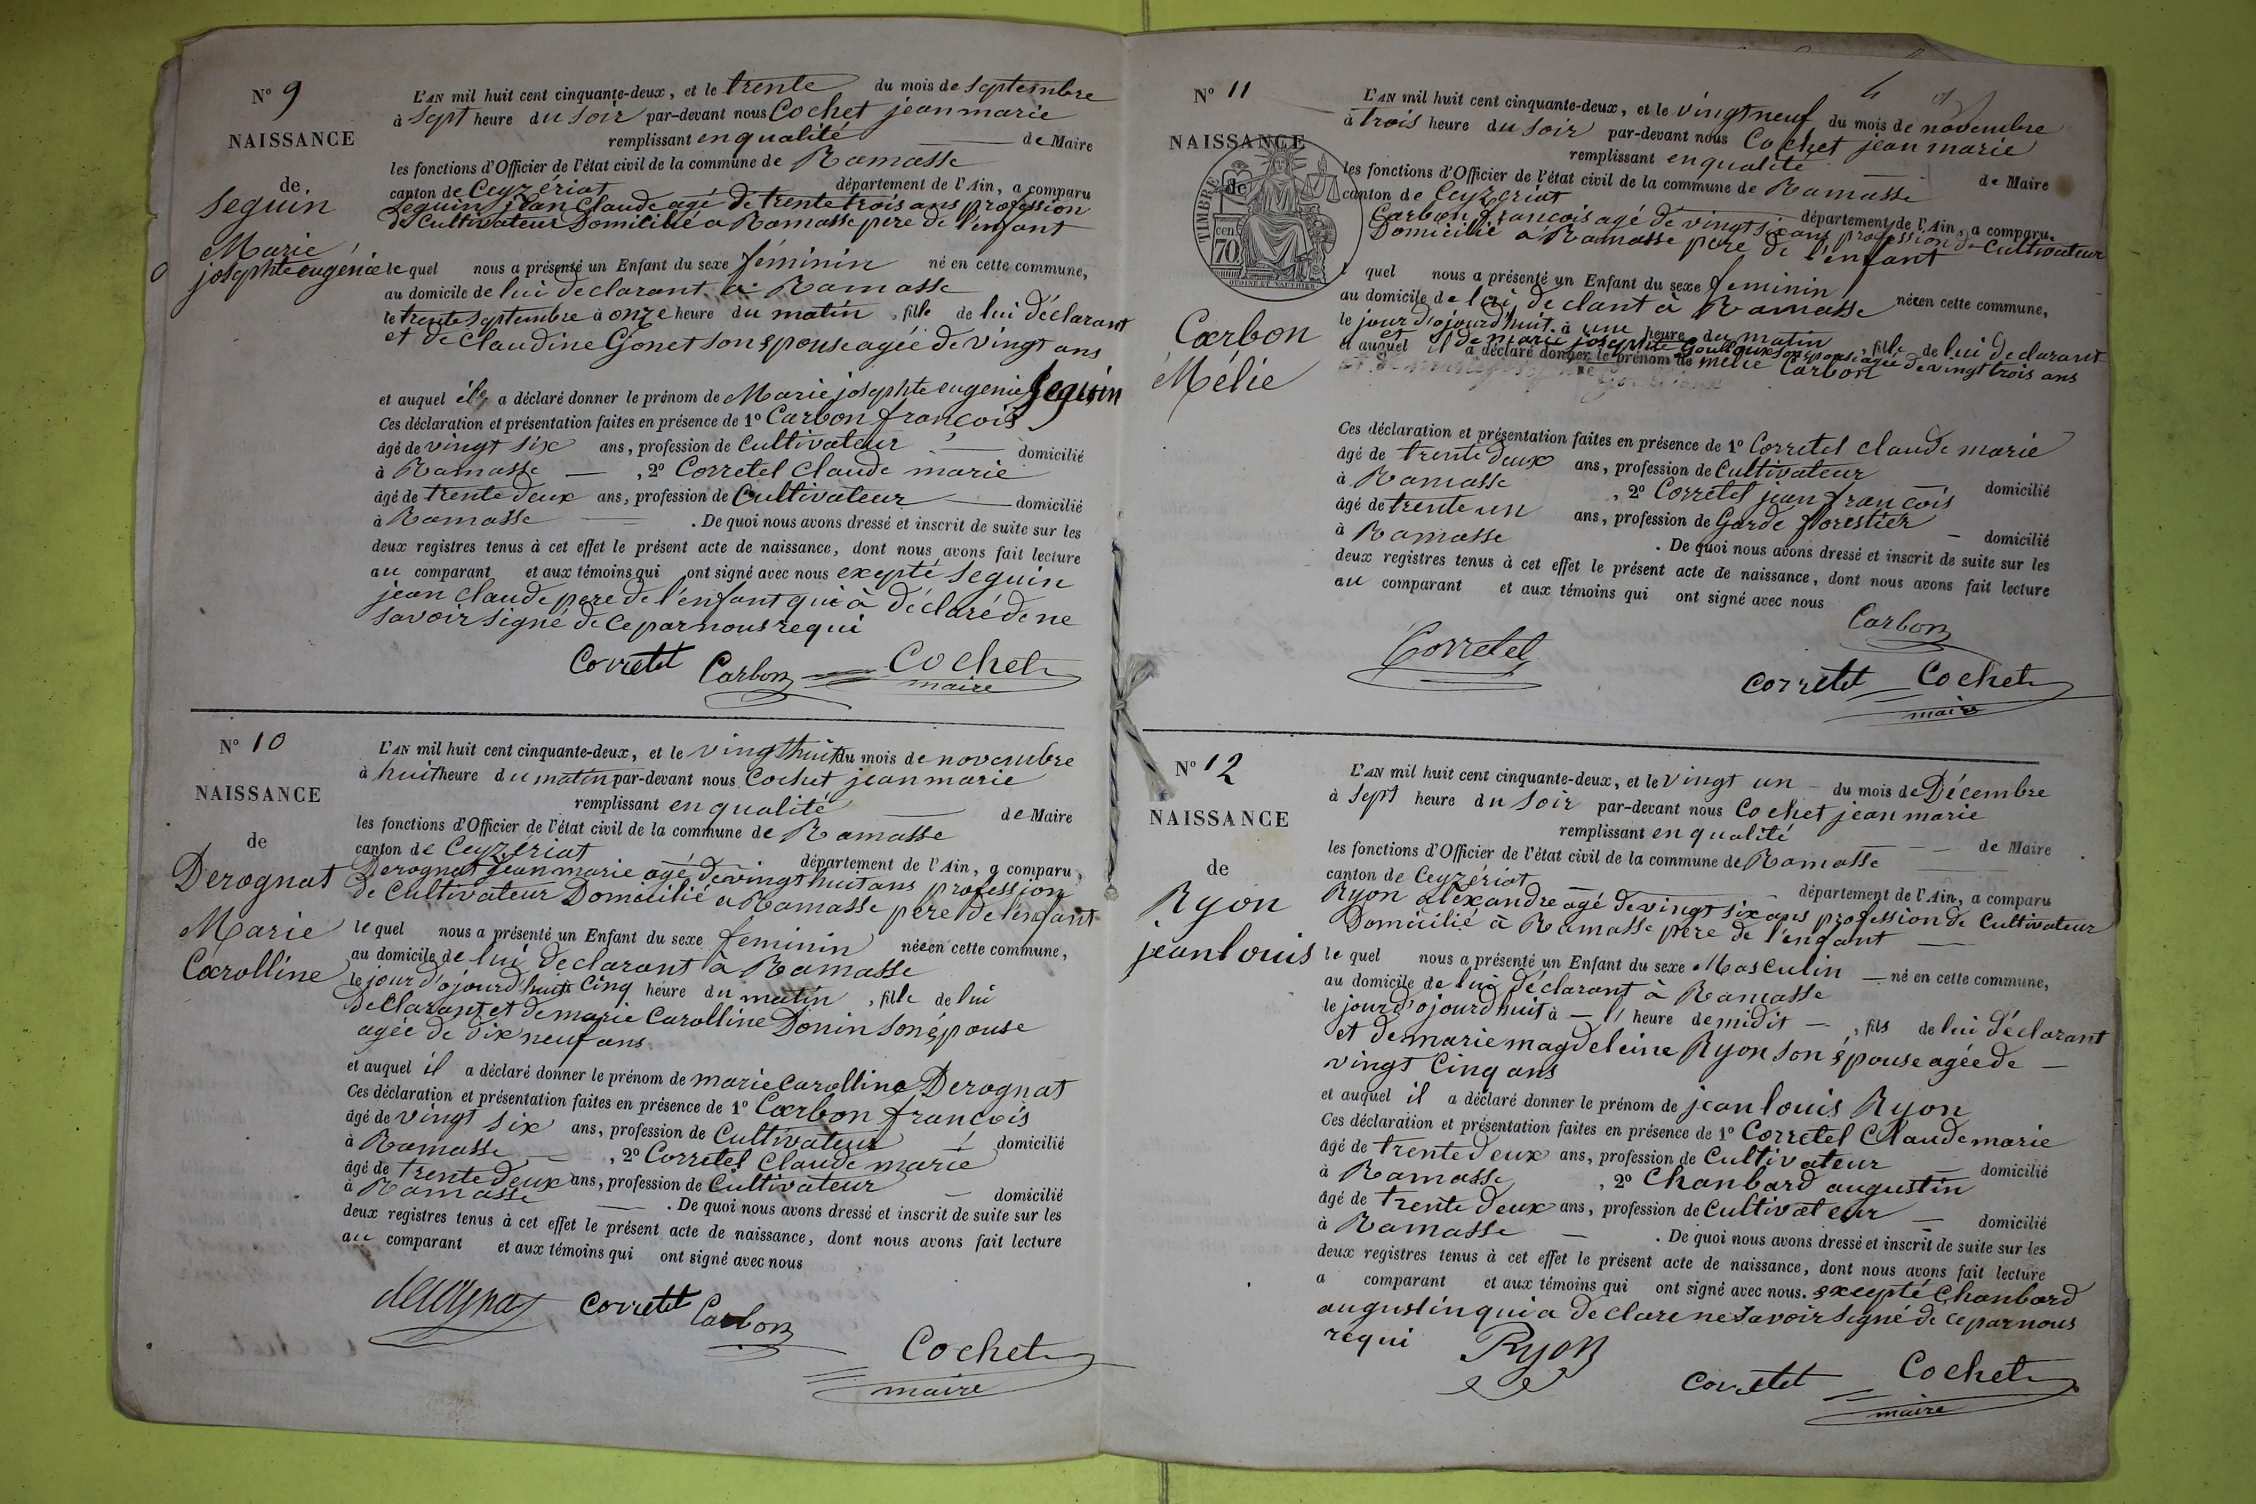 N° 9
NAISSANCE
de
Seguin
Marie
josephte eugénie
L'AN mil huit cent cinquante-deux, et le trente du mois de septembre
à sept heure du soir par-devant nous Cochet jean marie
remplissant en qualité de Maire
les fonctions d'Officier de l'état civil de la commune de Ramasse
canton de Ceyzériat département de l'Ain, a comparu
Seguin jean Claude agé de trente trois ans profession
de Cultivateur Domicilié a Ramasse pere de l'enfant
le quel nous a présenté un Enfant du sexe féminin né en cette commune,
au domicile de lui declarant a Ramasse
le trente septembre à onze heure du matin, fille de lui déclarant
et de Claudine Gonet son epouse agée de vingt ans
et auquel il a déclaré donner le prénom de Marie josephte eugenie Seguin
Ces déclaration et présentation faites en présence de 1° Carbon francois
âgé de vingt six ans, profession de Cultivateur domicilié
à Ramasse , 2° Corretel Claude marie
âgé de trente deux ans, profession de Cultivateur domicilié
à Ramasse . De quoi nous avons dressé et inscrit de suite sur les
deux registres tenus à cet effet le présent acte de naissance, dont nous avons fait lecture
au comparant et aux témoins qui ont signé avec nous exepté Seguin
jean Claude pere de l'enfant qui à déclaré de ne
savoir signé de ce par nous requi
Corretel Carbon Cochet
maire
N° 10
NAISSANCE
de
Derognat
Marie
Carolline
L'AN mil huit cent cinquante-deux, et le vingt huit du mois de novembre
à huit heure du matin par-devant nous Cochet jean marie
remplissant en qualité de Maire
les fonctions d'Officier de l'état civil de la commune de Ramasse
canton de Ceyzériat département de l'Ain, a comparu,
Derognat jean marie agé de vingt huit ans profession
de Cultivateur Domicilié a Ramasse pere de l'enfant
le quel nous a présenté un Enfant du sexe feminin née en cette commune,
au domicile de lui declarant à Ramasse
le jour d'ojourd huit à Cinq heure du matin, fille de lui
declarant et de marie Carolline Donin son épouse
agée de dix neuf ans
et auquel il a déclaré donner le prénom de marie carolline Derognat
Ces déclaration et présentation faites en présence de 1° Carbon francois
âgé de vingt six ans, profession de Cultivateur domicilié
à Ramasse , 2° Corretel Claude marie
âgé de trente deux ans, profession de Cultivateur domicilié
à Ramasse . De quoi nous avons dressé et inscrit de suite sur les
deux registres tenus à cet effet le présent acte de naissance, dont nous avons fait lecture
au comparant et aux témoins qui ont signé avec nous
Corretel Carbon
Cochet
maire
N° 11
NAISSANCE
de
TIMBRE
cen
70
Carbon
Mélie
4
L'AN mil huit cent cinquante-deux, et le vingt neuf du mois de novembre
à trois heure du soir par-devant nous Cochet jean marie
remplissant en qualité de Maire
les fonctions d'Officier de l'état civil de la commune de Ramasse
canton de Ceyzeriat département de l'Ain, a comparu.
Carbon francois agé de vingt six ans profession de Cultivateur
Domicilié a Ramasse pere de l'enfant
l quel nous a présenté un Enfant du sexe feminin née en cette commune,
au domicile de lui declant à Ramasse
le jour d'ojourd'huit à une heure du matin, fille de lui declarant
et de marie josephte Goulouxson epouse agée de vingt trois ans
et auquel il a déclaré donner le prénom de mélie Carbon
Ces déclaration et présentation faites en présence de 1° Corretel claude marie
âgé de trente deux ans, profession de Cultivateur domicilié
à Ramasse , 2° Corretel jean francois
âgé de trente un ans, profession de Garde florestier domicilié
à Ramasse . De quoi nous avons dressé et inscrit de suite sur les
deux registres tenus à cet effet le présent acte de naissance, dont nous avons fait lecture
au comparant et aux témoins qui ont signé avec nous
Carbon
Corretel
Corretel Cochet
maire
N° 12
NAISSANCE
de
Ryon
jean louis
L'AN mil huit cent cinquante-deux, et le vingt un du mois de Décembre
à sept heure du soir par-devant nous Cochet jean marie
remplissant en qualité de Maire
les fonctions d'Officier de l'état civil de la commune de Ramasse
canton de Ceyzériat département de l'Ain, a comparu
Ryon alexandre agé de vingt six ans profession de Cultivateur
Domicilié à Ramasse pere de l'enfant
le quel nous a présenté un Enfant du sexe Masculin né en cette commune,
au domicile de lui déclarant à Ramasse
le jourd'ojourd huit à heure de midit , fils de lui déclarant
et de marie magdeleine Ryon son épouse agée de
vingt Cinq ans
et auquel il a déclaré donner le prénom de jean louis Ryon
Ces déclaration et présentation faites en présence de 1° Corretel Claude marie
âgé de trente deux ans, profession de Cultivateur domicilié
à Ramasse , 2° Chanbard augustin
âgé de trente deux ans, profession de Cultivateur domicilié
à Ramasse . De quoi nous avons dressé et inscrit de suite sur les
deux registres tenus à cet effet le présent acte de naissance, dont nous avons fait lecture
a comparant et aux témoins qui ont signé avec nous. excepté Chanbard
augustin qui a declare ne savoir signé de ce par nous
requi
Ryon
Corretel Cochet
maire